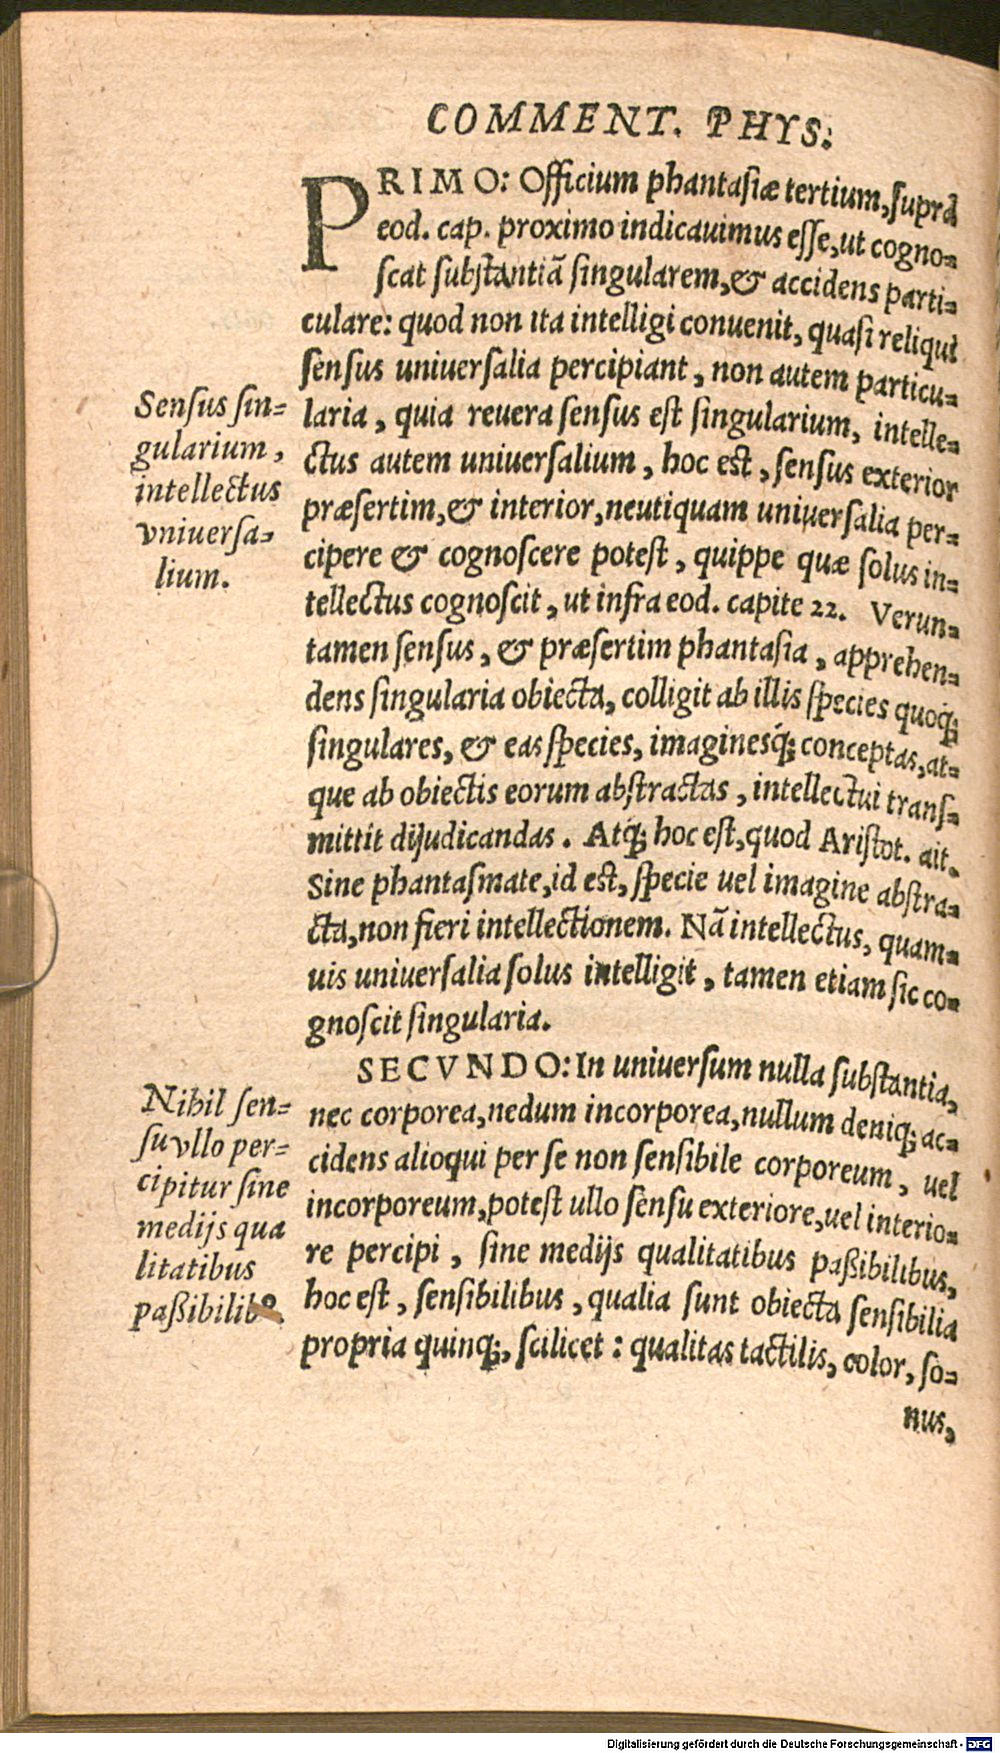 COMMENT. PHYS:
PRIMO: Officium phantasiæ tertium, suprà
eod. cap. proximo indicauimus esse, ut cogno=
scat substantiã singularem, & accidens parti=
culare: quod non ita intelligi conuenit, quasi reliqui
sensus uniuersalia percipiant, non autem particu=
laria, quia reuera sensus est singularium, intelle=
ctus autem uniuersalium, hoc est, sensus exterior
præsertim, & interior, neutiquam uniuersalia per=
cipere & cognoscere potest, quippe quæ solus in=
tellectus cognoscit, ut infra eod. capite 22. Verun=
tamen sensus, & præsertim phantasia, apprehen=
dens singularia obiecta, colligit ab illis species quoq;
singulares, & eas species, imaginesq́; conceptas, at=
que ab obiectis eorum abstractas, intellectui trans=
mittit dijudicandas. Atq; hoc est, quod Aristot. ait.
Sine phantasmate, id est, specie uel imagine abstra=
cta, non fieri intellectionem. Nã intellectus, quam=
uis uniuersalia solus intelligit, tamen etiam sic co=
gnoscit singularia.
Sensus sin=
gularium,
intellectus
vniuersa=
lium.
SECVNDO: In uniuersum nulla substantia,
nec corporea, nedum incorporea, nullum deniq; ac=
cidens alioqui per se non sensibile corporeum, uel
incorporeum, potest ullo sensu exteriore, uel interio=
re percipi, sine medijs qualitatibus paßibilibus,
hoc est, sensibilibus, qualia sunt obiecta sensibilia
propria quinq;, scilicet: qualitas tactilis, color, so=
nus,
Nihil sen=
su vllo per=
cipitur sine
medijs qua
litatibus
paßibilib9.
Digitalisierung gefördert durch die Deutsche Forschungsgemeinschaft - DFG